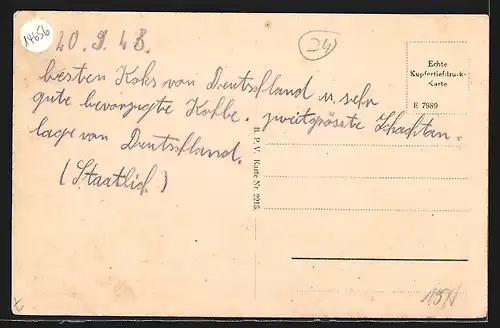 14656
20.9.43.
24
Echte
Kupfertiefdruck-
Karte
E 7989
besten Koks von Deutschland u. sehr
gute bevorzugte Kohle. zweitgrösste Schachtan-
lage von Deutschland.
(Staatlich)
B. P. V. Karte Nr. 2215.
15N